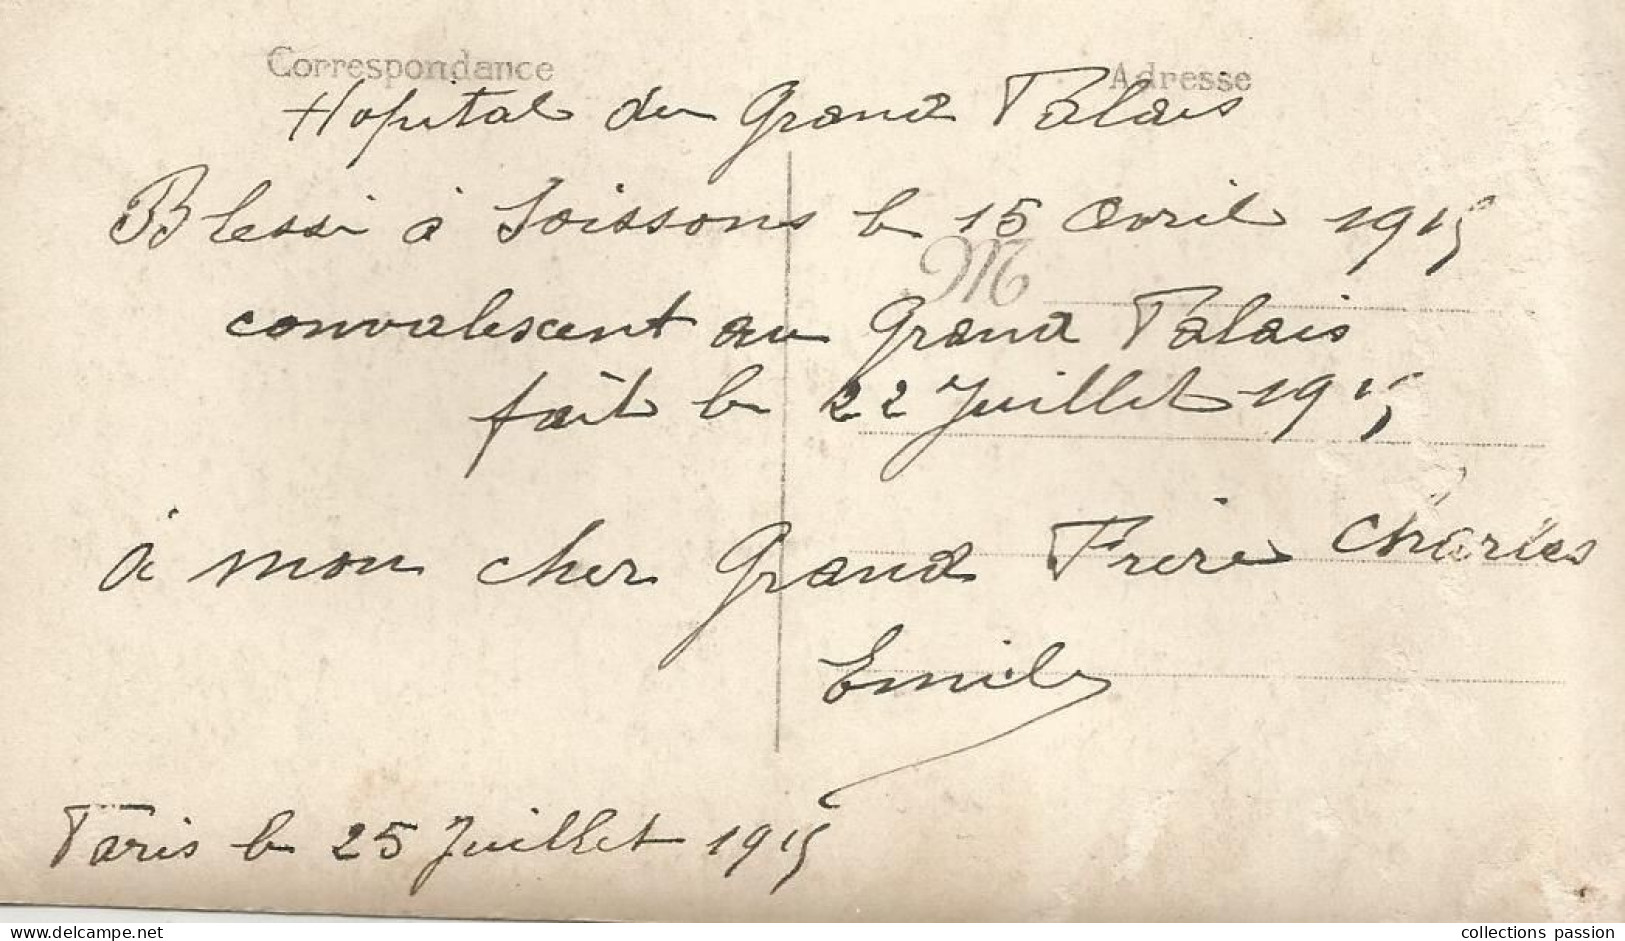 Correspondance
Adresse
Hopital du Grand Palais
Blessé à Soissons le 15 Avril 1915
M
convalescent au Grand Palais
fait le 22 Juillet 1915
à mon cher Grand Frère Charles
Emile
Paris le 25 Juillet 1915
www.delcampe.net
collections passion